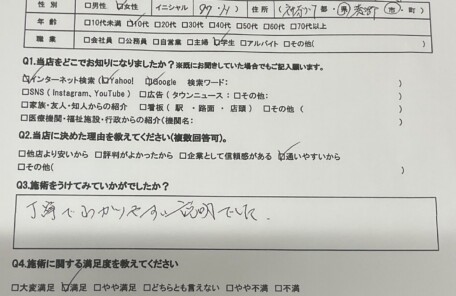 性別 □男性 ☑女性 イニシャル 住所 都・県 市・町)
年齢 □10代未満 ☑10代 □20代 □30代 □40代 □50代 □60代 □70代以上
職業 □会社員 □公務員 □自営業 □主婦 ☑学生 □アルバイト □その他( )
Q1.当店をどこでお知りになりましたか?※既にお聞きしていた場合でもご記入願います。
☑インターネット検索(☑Yahoo! ☑Google 検索ワード: )
□SNS(Instagram、YouTube) □広告(タウンニュース:□その他: )
□家族・友人・知人からの紹介 □看板(駅・路面・店頭) □その他( )
□医療機関・福祉施設・行政からの紹介(機関名: )
Q2.当店に決めた理由を教えてください(複数回答可)。
□他店より安いから □評判がよかったから □企業として信頼感がある ☑通いやすいから
□その他( )
Q3.施術をうけてみていかがでしたか?
丁寧でわかりやすい説明でした。
Q4.施術に関する満足度を教えてください
□大変満足 ☑満足 □やや満足 □どちらとも言えない □やや不満 □不満